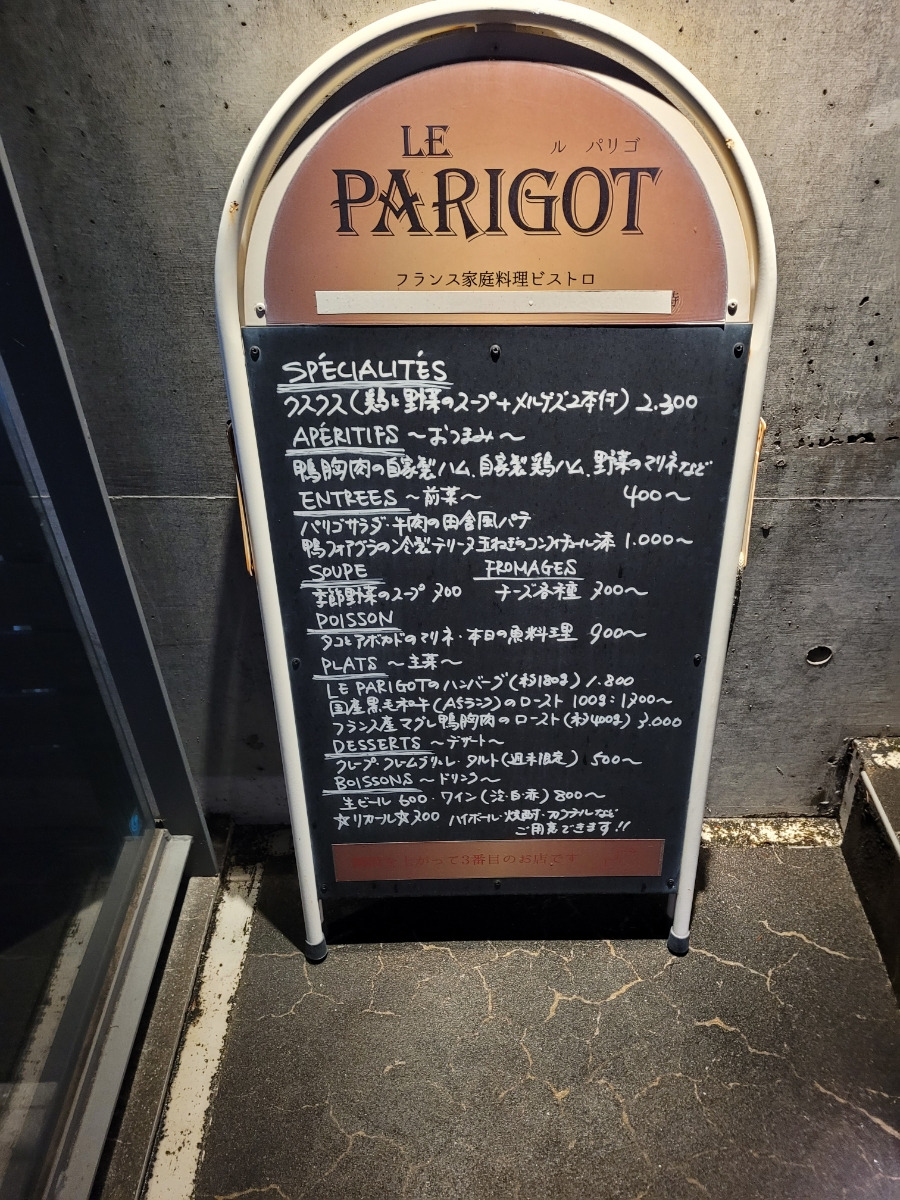 LE
ル パリゴ
PARIGOT
フランス家庭料理ビストロ
SPÉCIALITÉS
クスクス(鶏と野菜のスープ+メルゲズ2本付) 2.300
APÉRITIFS ~おつまみ~
鴨胸肉の自家製ハム、自家製鶏ハム、野菜のマリネなど
400~
ENTREES ~前菜~
パリゴサラダ・牛肉の田舎風パテ
鴨フォアグラの冷製テリーヌ玉ねぎのコンフィチュール添 1.000~
SOUPE
季節野菜のスープ 700
FROMAGES
チーズ各種 700~
POISSON
タコとアボカドのマリネ・本日の魚料理 900~
PLATS ~主菜~
LE PARIGOTのハンバーグ(約180g) 1.800
国産黒毛和牛(A5ランク)のロースト 100g:1700~
フランス産マグレ鴨胸肉のロースト(約400g) 3.000
DESSERTS ~デザート~
クレープ・クレームブリュレ・タルト(週末限定) 500~
BOISSONS ~ドリンク~
生ビール 600・ワイン(泡・白・赤) 800~
☆リカール☆700 ハイボール・焼酎・カクテルなど
ご用意できます!!
上がって3番目のお店です